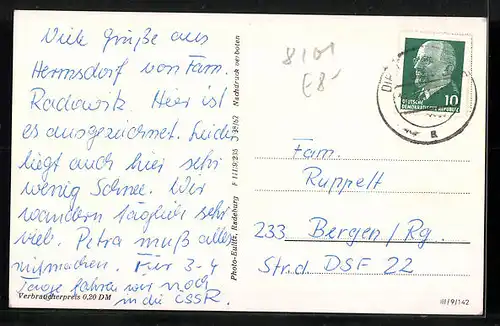 Viele Grüße aus
Hermsdorf von Fam.
Radowitz. Hier ist
es ausgezeichnet. Leider
liegt auch hier sehr
wenig Schnee. Wir
wandern täglich sehr
viel. Petra muß alles
mitmachen. Für 3-4
Tage fahren wir noch
in die ČSSR.
Verbraucherpreis 0,20 DM
Photo-Eulitz, Radeburg F 111/9/235 J 39/62 Nachdruck verboten
8101
E8-
DEUTSCHE
DEMOKRATISCHE REPUBLIK
10
a
Fam.
Ruppelt
233 Bergen/Rg.
Str. d. DSF 22
III/9/142